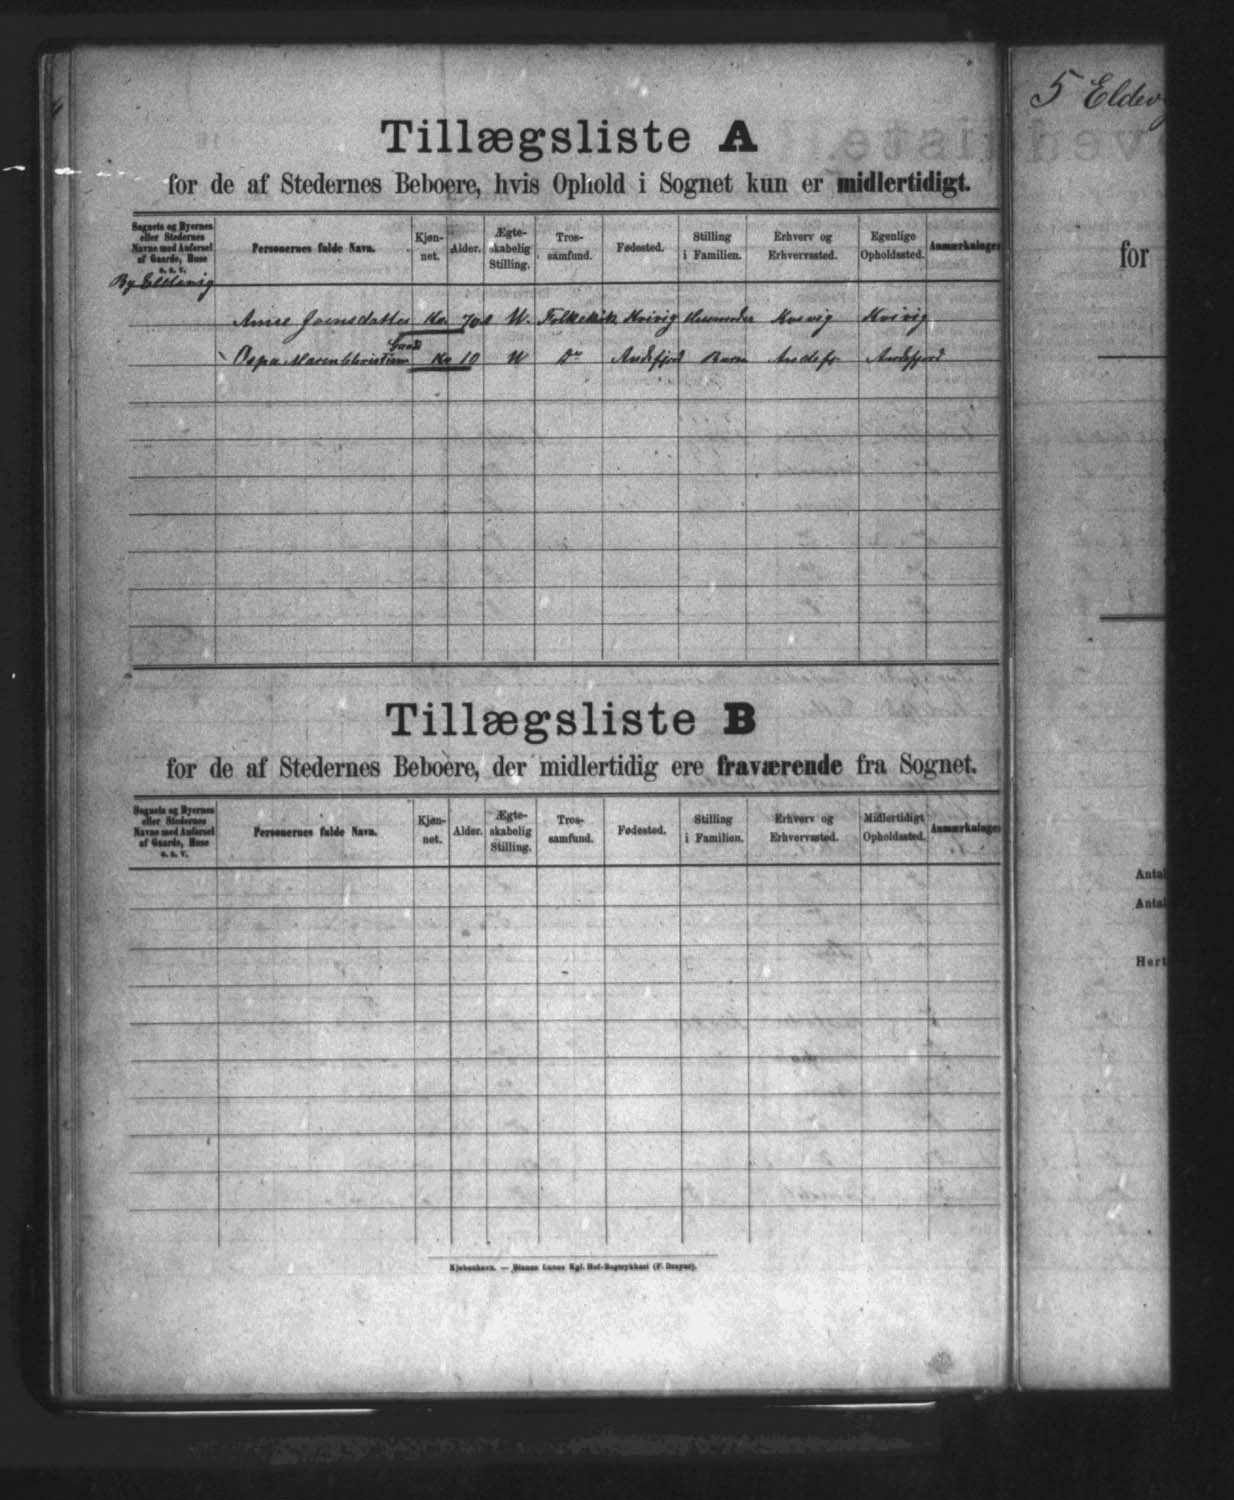 5 Eldev
Tillægsliste A
for de af Stedernes Beboere, hvis Ophold i Sognet kun er midlertidigt.
Sognets og Byernes eller Stedernes Navne med Anførsel af Gaarde, Huse o. s. v. | Personernes fulde Navn. | Kjøn-net. | Alder. | Ægte-skabelig Stilling. | Tros-samfund. | Fødested. | Stilling i Familien. | Erhverv og Erhvervssted. | Egenlige Opholdssted. | Anmærkninger
By Eldevig
Joensdatter Kv 70 U. Folkekirk Kvivig Kvivig
Maren Christian Kv 10 U Do Andefjord Barn Andefj Andefjord
Tillægsliste B
for de af Stedernes Beboere, der midlertidig ere fraværende fra Sognet.
Sognets og Byernes eller Stedernes Navne med Anførsel af Gaarde, Huse o. s. v. | Personernes fulde Navn. | Kjøn-net. | Alder. | Ægte-skabelig Stilling. | Tros-samfund. | Fødested. | Stilling i Familien. | Erhverv og Erhvervssted. | Midlertidigt Opholdssted. | Anmærkninger
Kjøbenhavn. — Bianco Lunos Kgl. Hof-Bogtrykkeri (F. Dreyer).
for
Antal
Antal
Hert